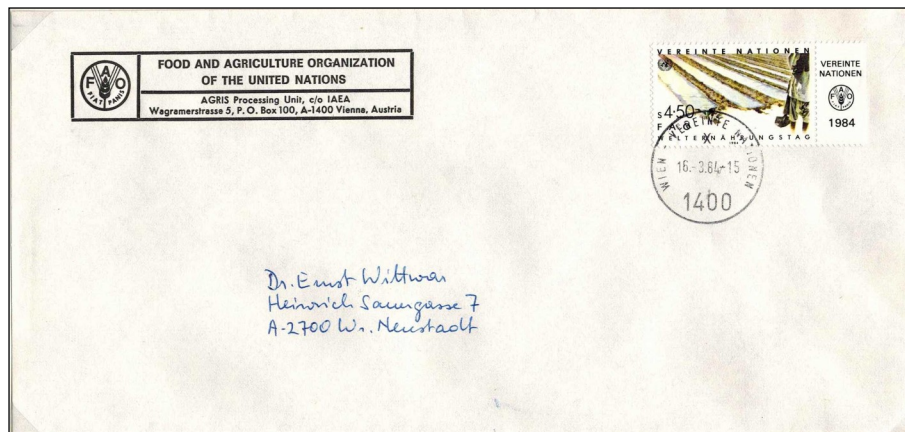 FAO
FIAT PANIS
FOOD AND AGRICULTURE ORGANIZATION
OF THE UNITED NATIONS
AGRIS Processing Unit, c/o IAEA
Wagramerstrasse 5, P. O. Box 100, A-1400 Vienna, Austria
VEREINTE NATIONEN
S 4·50
WELTERNÄHRUNGSTAG
VEREINTE
NATIONEN
FAO
1984
WIEN - VEREINTE NATIONEN
16.-3.84-15
1400
Dr. Ernst Wittwar
Heinrich Saurgasse 7
A-2700 Wr. Neustadt